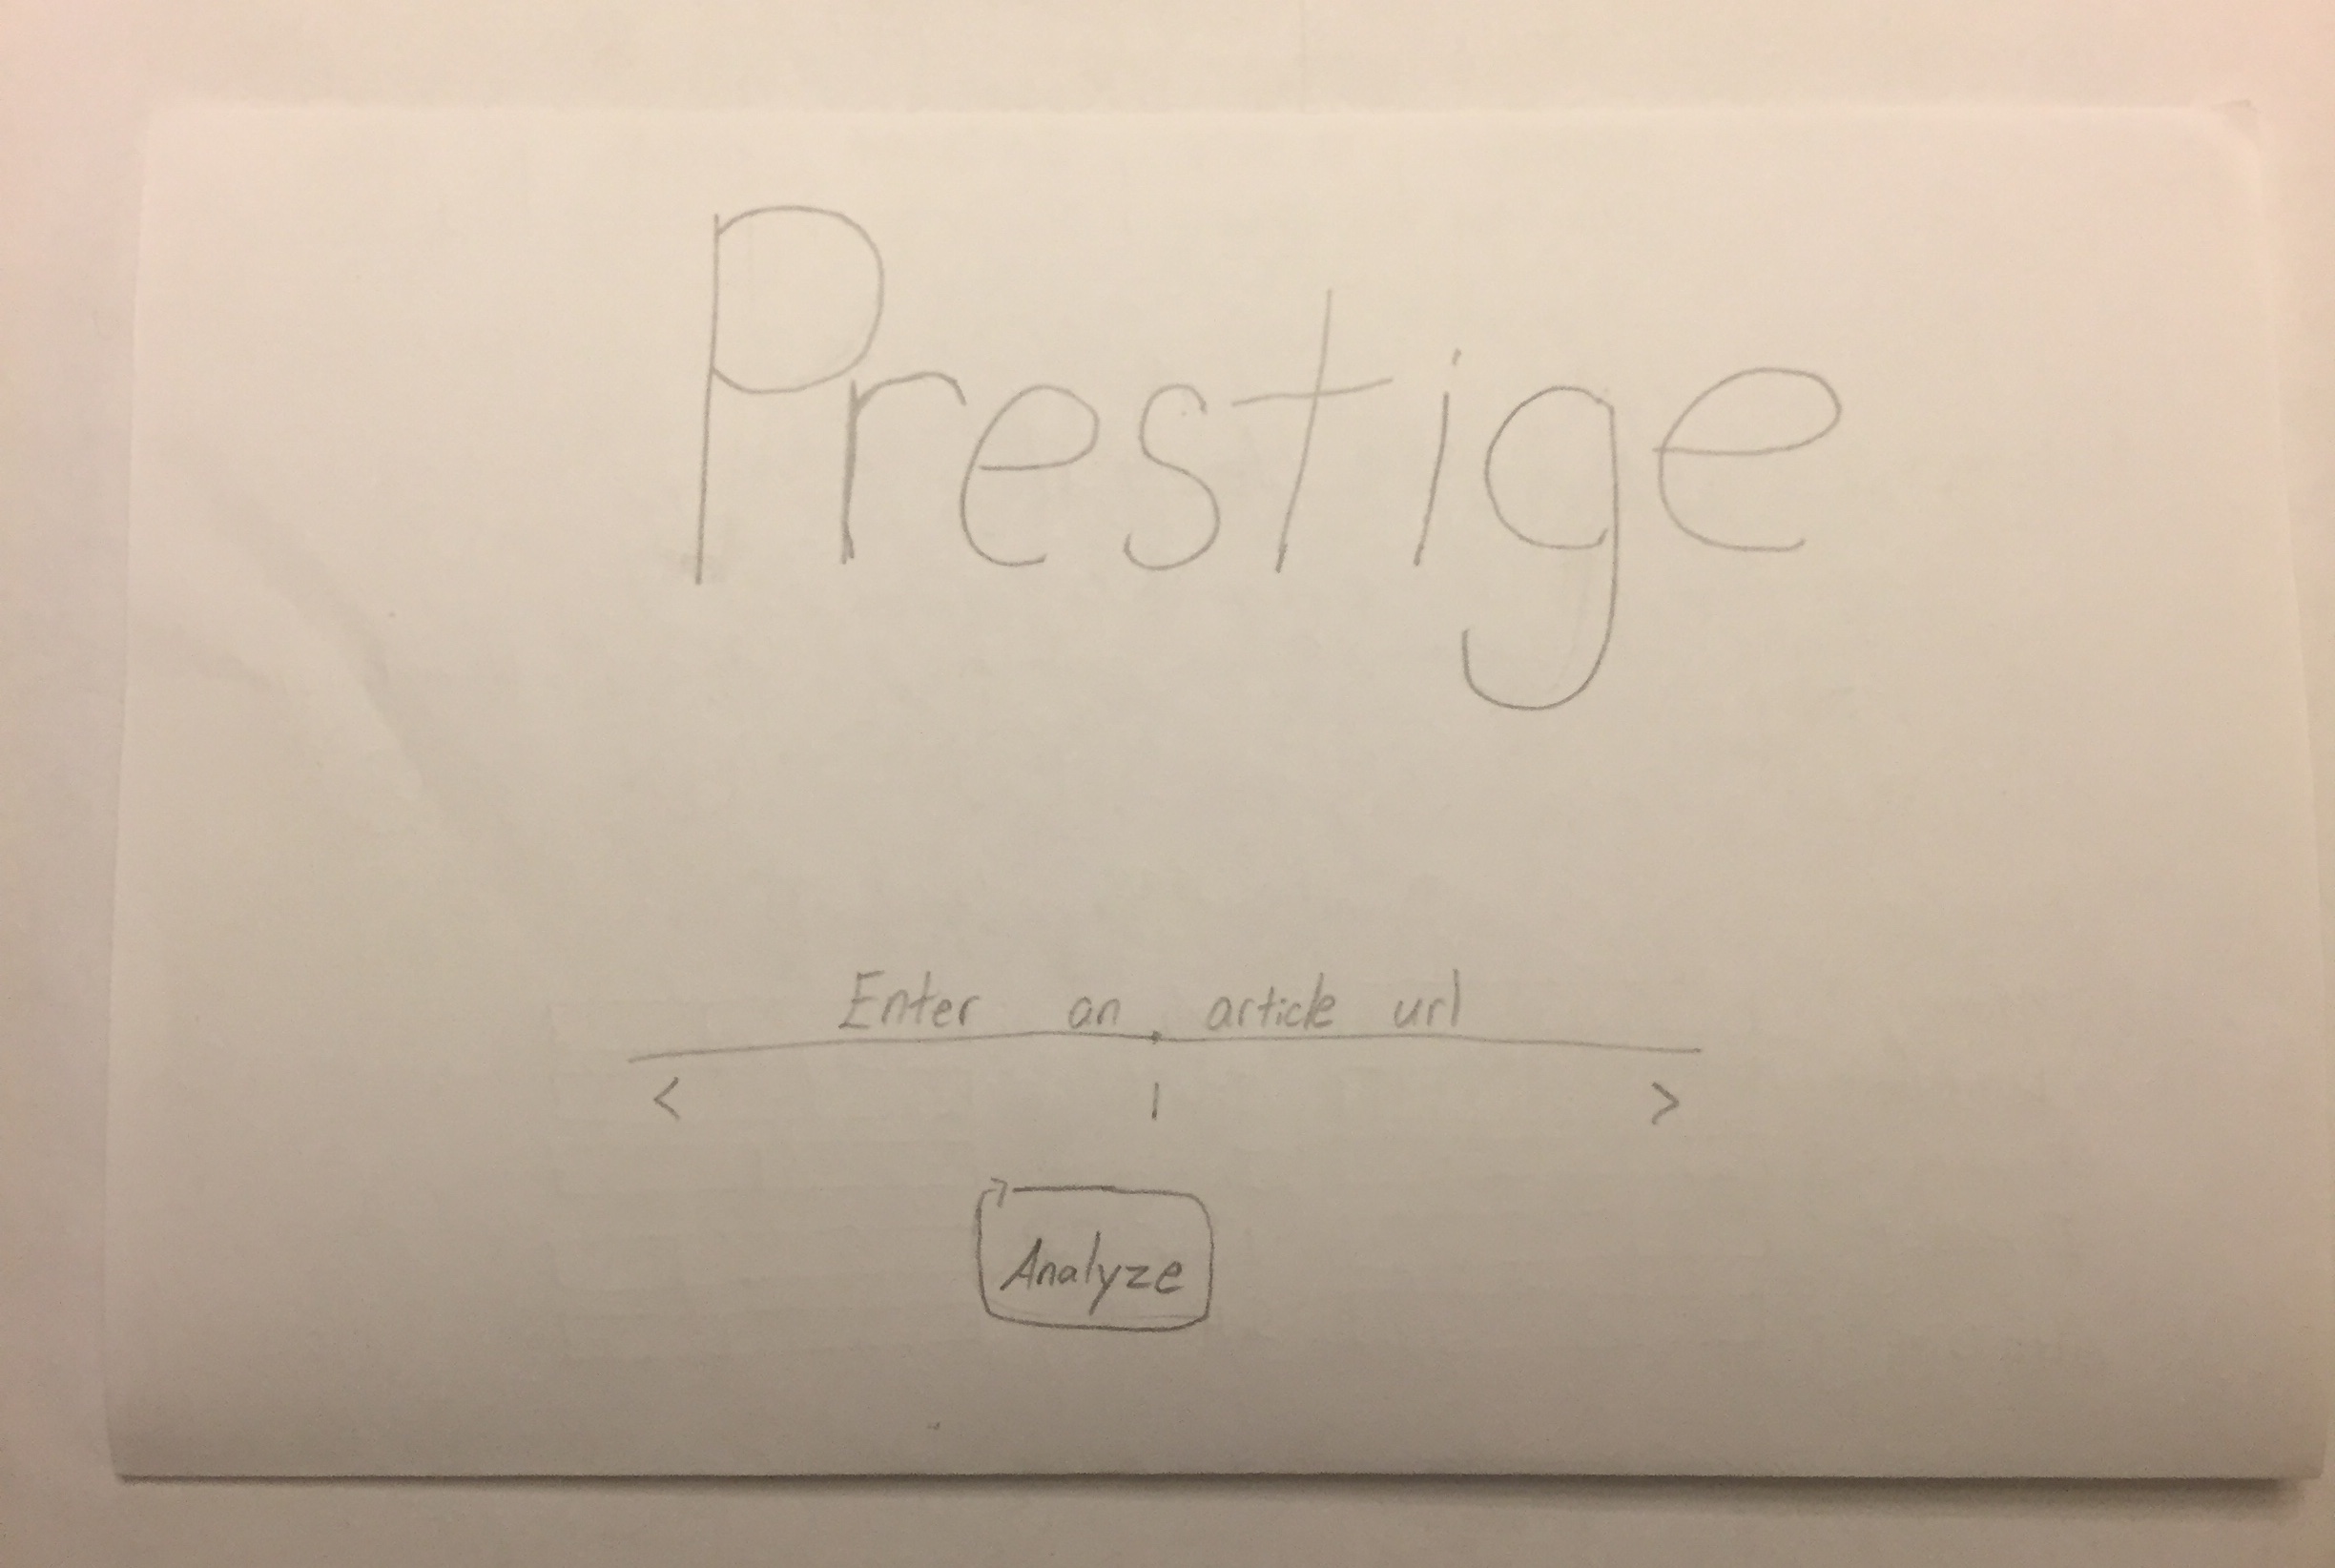 Prestige
Enter an article url
< | >
Analyze